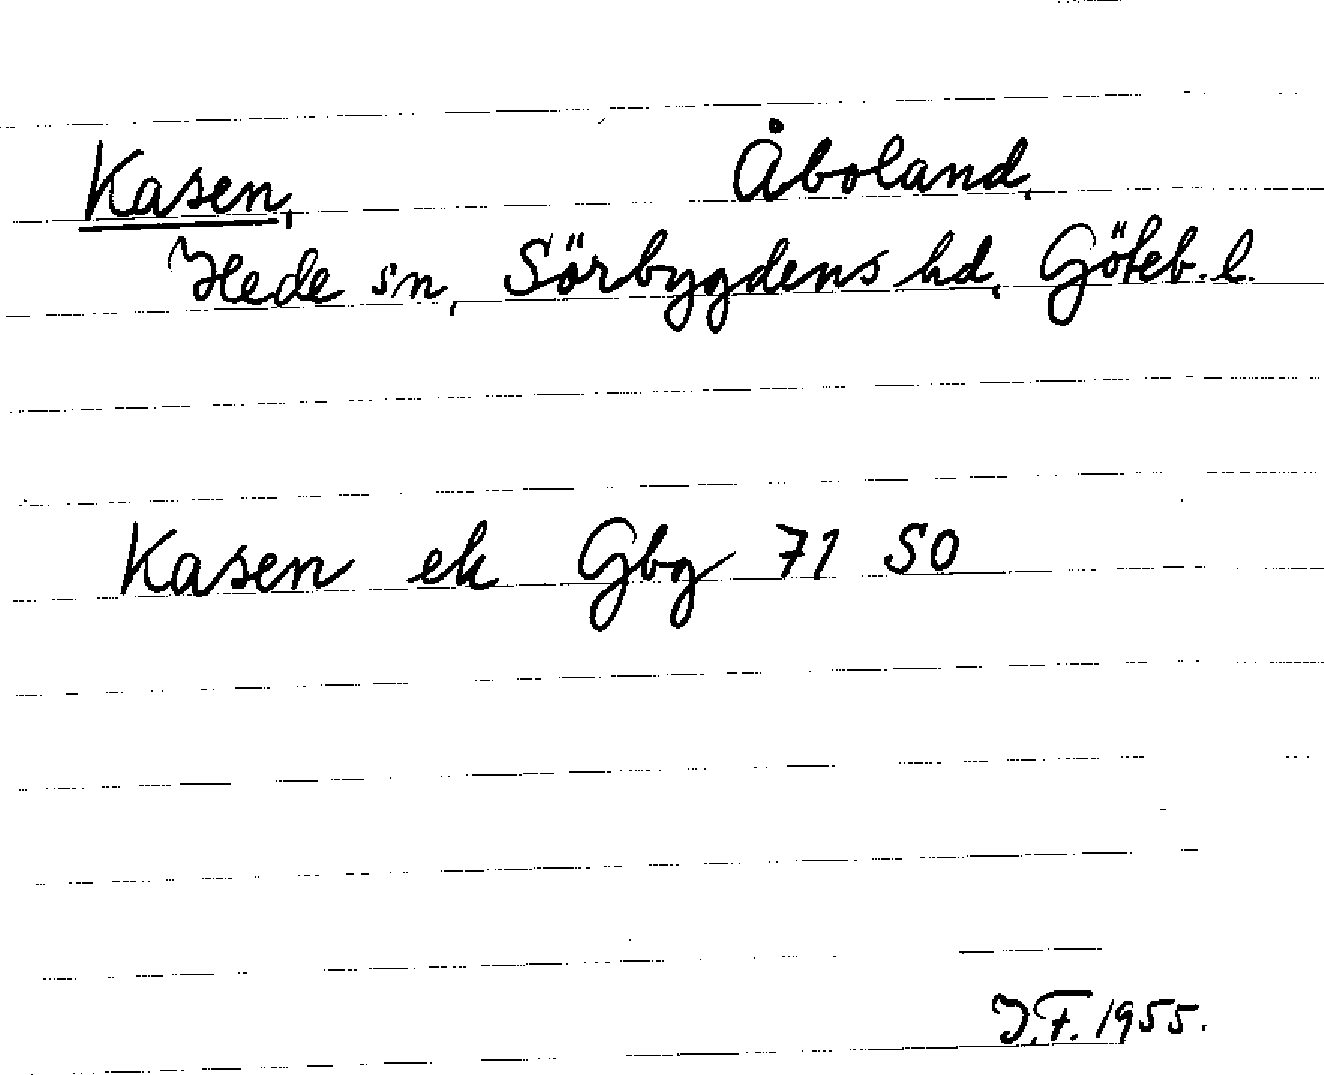 Kasen, Åboland,
Hede sn, Sörbygdens hd, Göteb. l.
Kasen ek Gbg 71 SO
J.F. 1955.